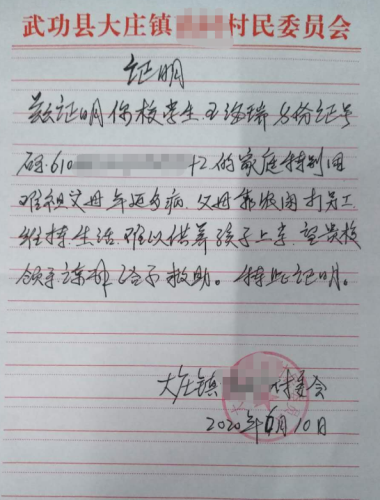 武功县大庄镇 村民委员会
证明
兹证明你校学生 王 瑞 身份证号
码:610 12 的家庭特别困
难祖父母年迈多病 父母靠农闲打零工
维持生活 难以供养孩子上学 望贵校
领导 给予救助。特此证明。
大庄镇 村委会
2020年6月10日